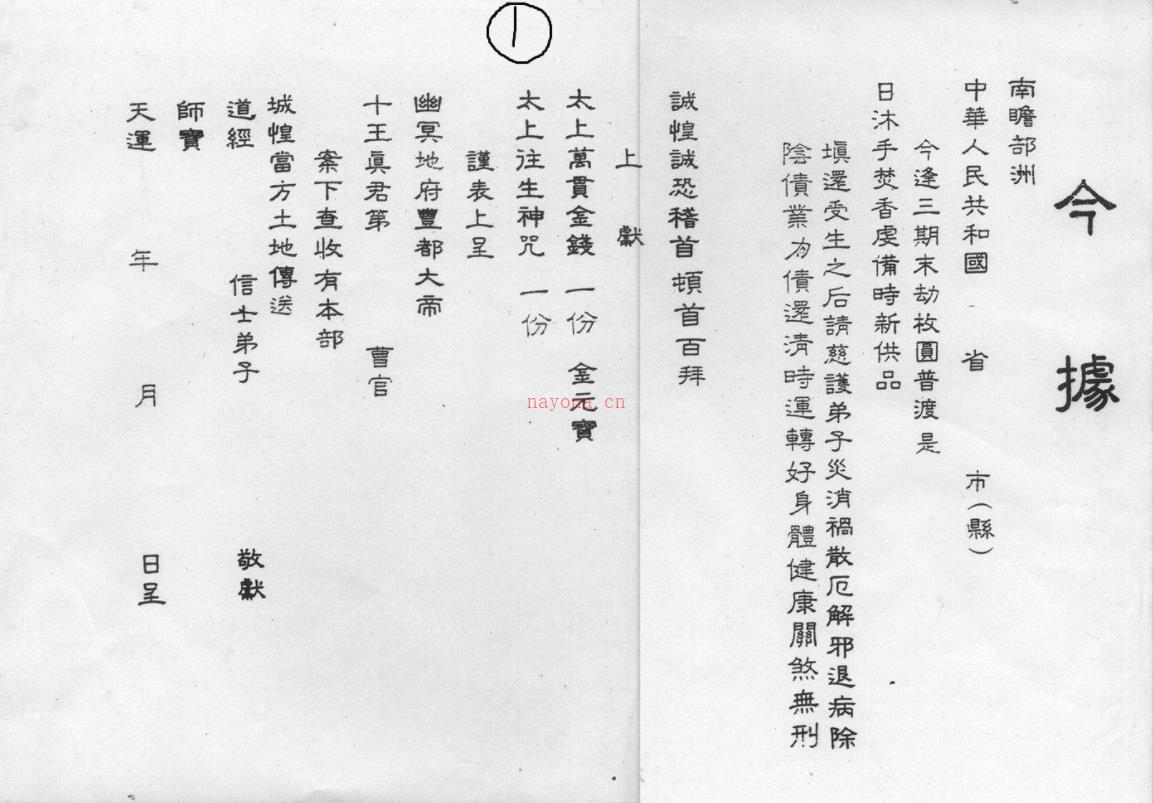 ①
今據
南瞻部洲
中華人民共和國 省 市(縣)
今逢三期末劫收圓普渡是
日沐手焚香虔備時新供品
塡還受生之后請慈護弟子災消禍散厄解邪退病除
陰債業為債還清時運轉好身體健康關煞無刑
誠惶誠恐稽首頓首百拜
上獻
太上萬貫金錢一份 金元寶
太上往生神咒一份
謹表上呈
幽冥地府豐都大帝
十王真君第 曹官
案下查收有本部
城惶當方土地傳送
道經 信士弟子 敬獻
師寶
天運 年 月 日呈
nayona.cn